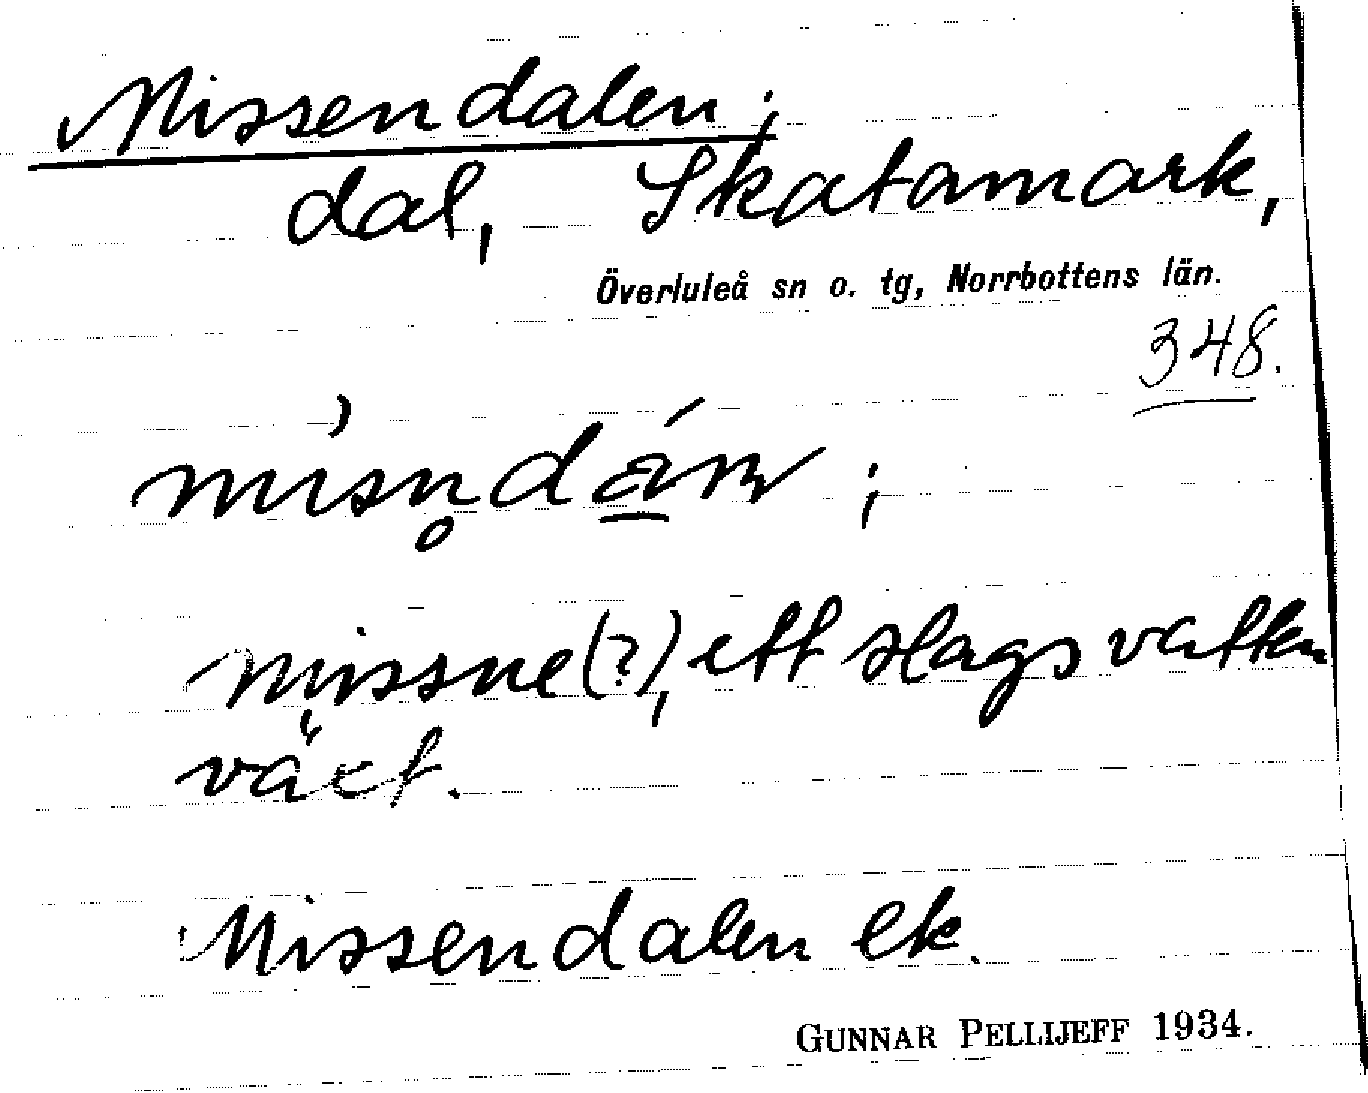 Missendalen;
dal, Skatamark,
Överluleå sn o. tg, Norrbottens län.
348.
missne(?), ett slags vatten
växt.
Missendalen ek.
GUNNAR PELLIJEFF 1934.